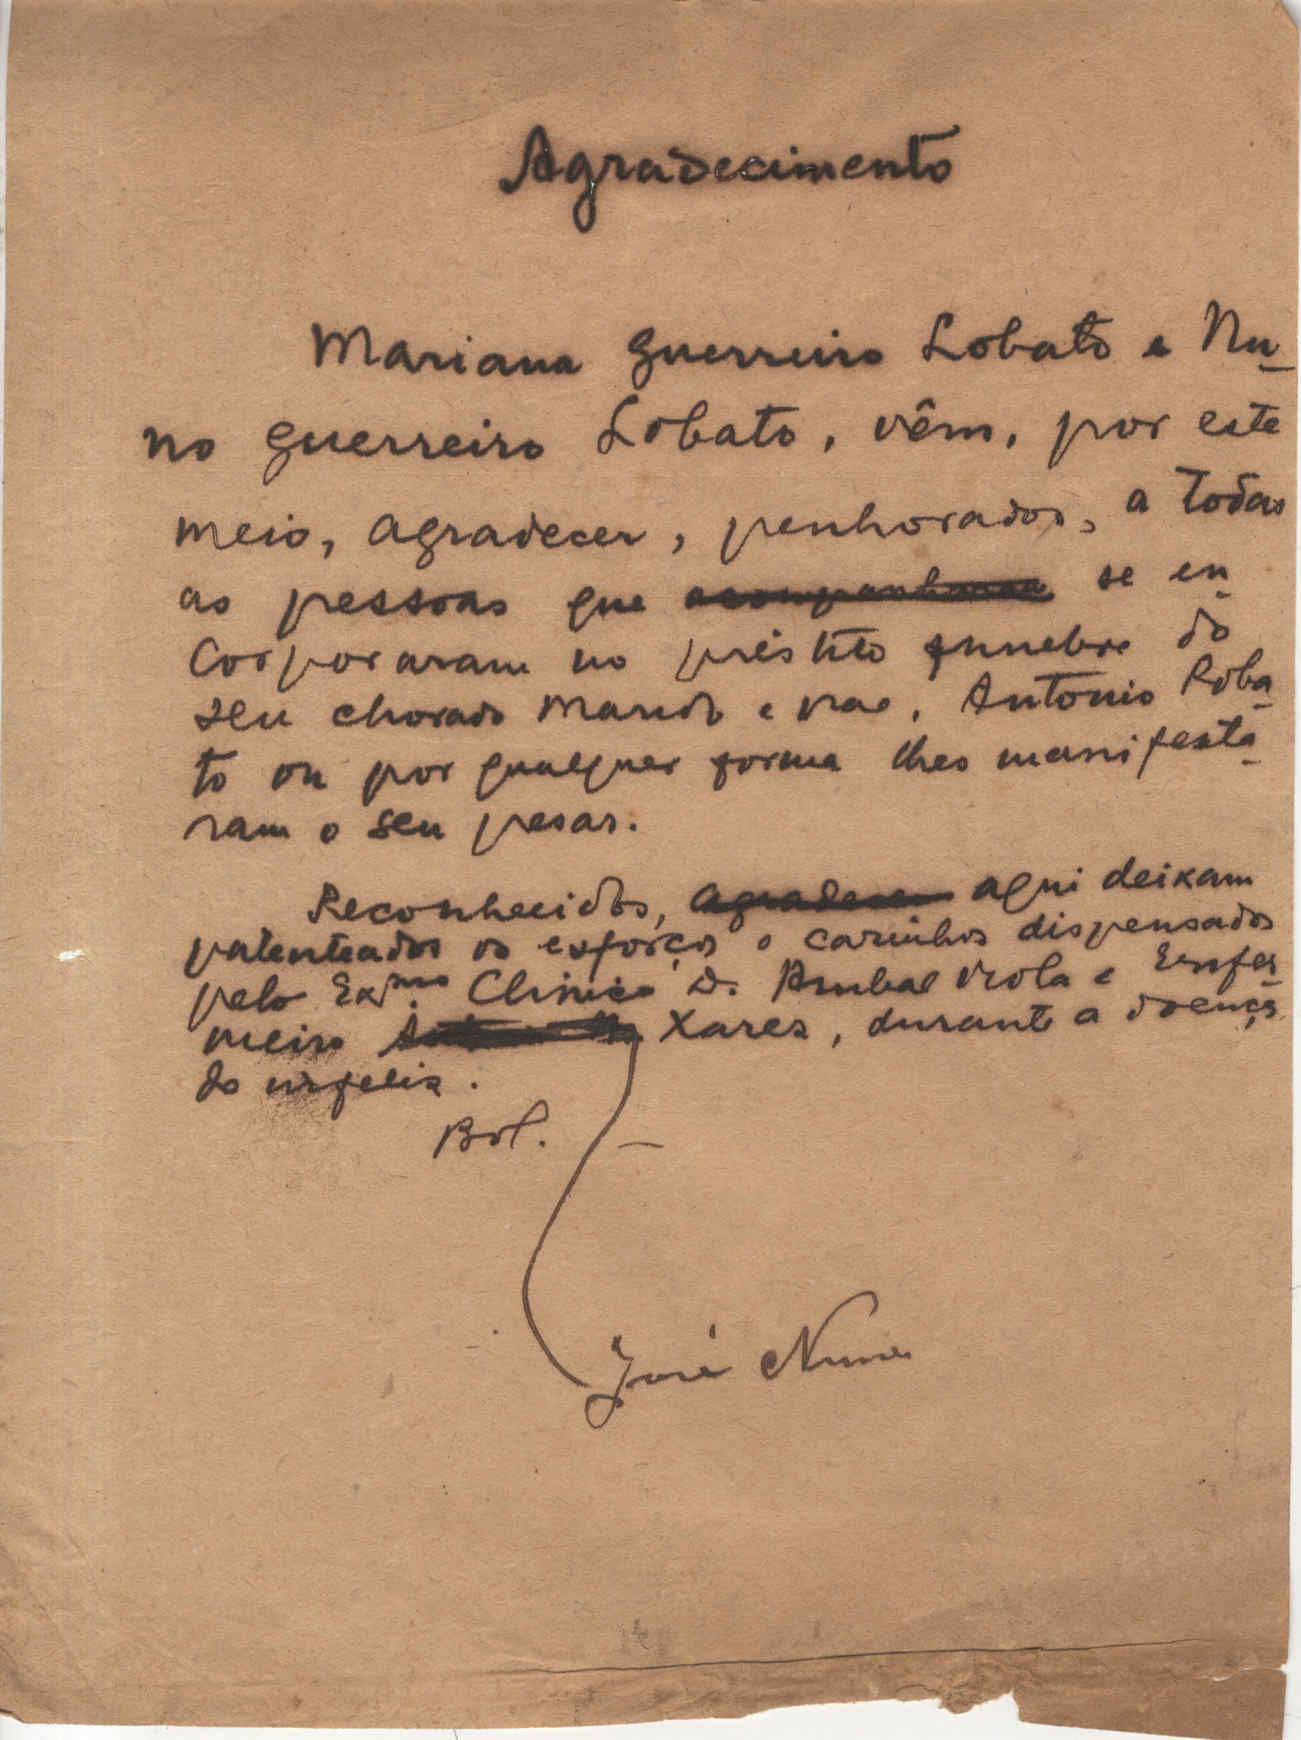 Agradecimento
Mariana Guerreiro Lobato e Nu-
no Guerreiro Lobato, vêm, por este
meio, agradecer, penhorados, a todas
as pessoas que acompanharam se en-
corporaram no préstito funebre do
seu chorado marido e pae, Antonio Loba-
to ou por qualquer forma lhes manifesta-
ram o seu pesar.
Reconhecidos, agradecem aqui deixam
patenteados os esforços e carinhos dispensados
pelo Exmo Clinico Dr. Anibal Viola e Enfer-
meiro Xarez, durante a doença
do infeliz.
Bol.
José Nunes